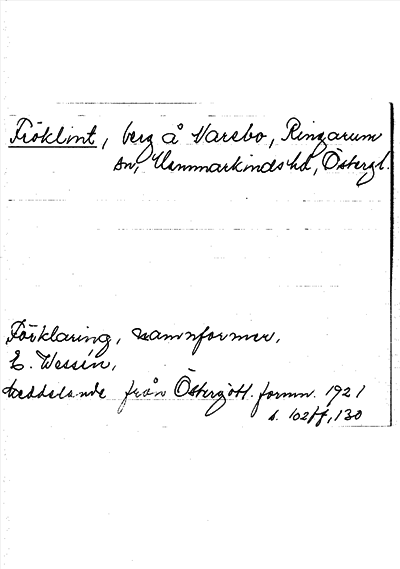 Fröklint, berg å Varsbo, Ringarum
sn, Hammarkinds hd, Östergl.
Förklaring, namnformer.
E. Wessén,
Meddelande från Östergötl. fornm. 1921
s. 102ff, 130